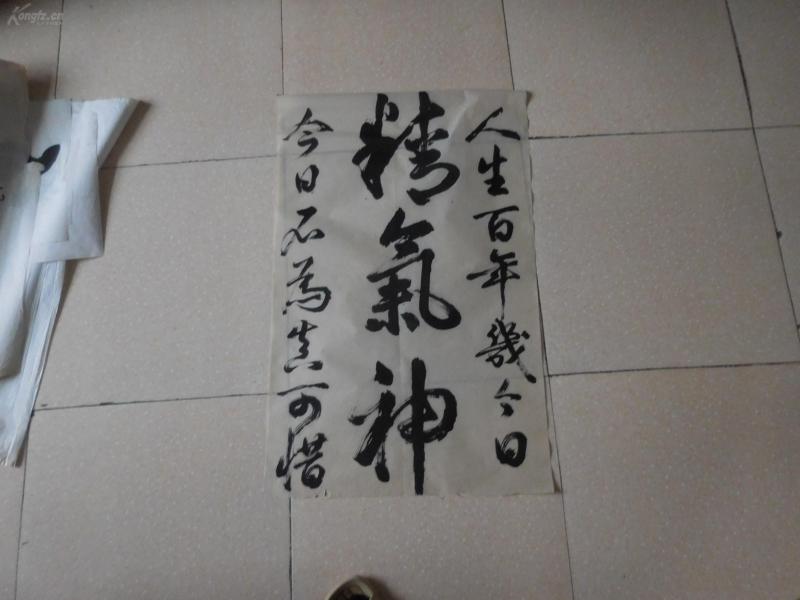 人生百年幾今日
精氣神
今日不為真可惜
Kongfz.cn